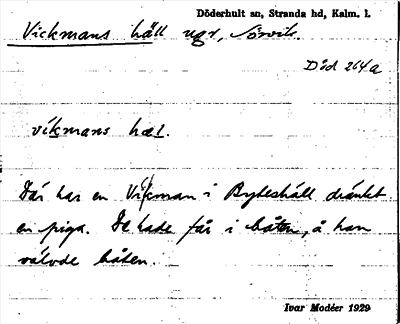 Döderhult sn, Stranda hd, Kalm. l.
Vickmans häll ugr, Sörvik.
Död 264a
víkmans hæl.
Där har en Vikman i Byteshäll dränkt
en piga. De hade får i båten, å han
välvde båten.
Ivar Modéer 1929